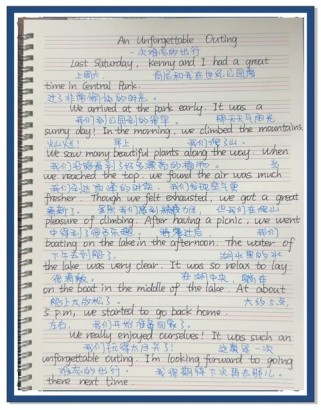 An Unforgettable Outing
一次难忘的出行
Last Saturday, Kenny and I had a great
上周六, 肯尼和我在世纪公园
time in Central Park.
过了非常愉快的时光。
We arrived at the park early. It was a
我们到公园到的很早。
sunny day! In the morning, we climbed the mountains.
早上 我们爬了山。
We saw many beautiful plants along the way. When
我们沿路看到了好多漂亮的植物。 当
we reached the top, we found the air was much
我们到达顶峰的时候, 我们发现空气更
fresher. Though we felt exhausted, we got a great
清新了。 虽然我们感到精疲力尽, 但我们在爬山
pleasure of climbing. After having a picnic, we went
中得到了很多乐趣。 野餐过后 我们
boating on the lake in the afternoon. The water of
下午去划船了。 湖水里的水
the lake was very clear. It was so relax to lay
很清澈。 在湖中央, 躺在
on the boat in the middle of the lake. At about
船上太放松了。 大约5点
5 p.m, we started to go back home.
左右, 我们开始准备回家了。
We really enjoyed ourselves! It was such an
我们玩得太开心了! 这真是一次
unforgettable outing. I'm looking forward to going
难忘的出行。 我很期待下次再去那儿。
there next time.